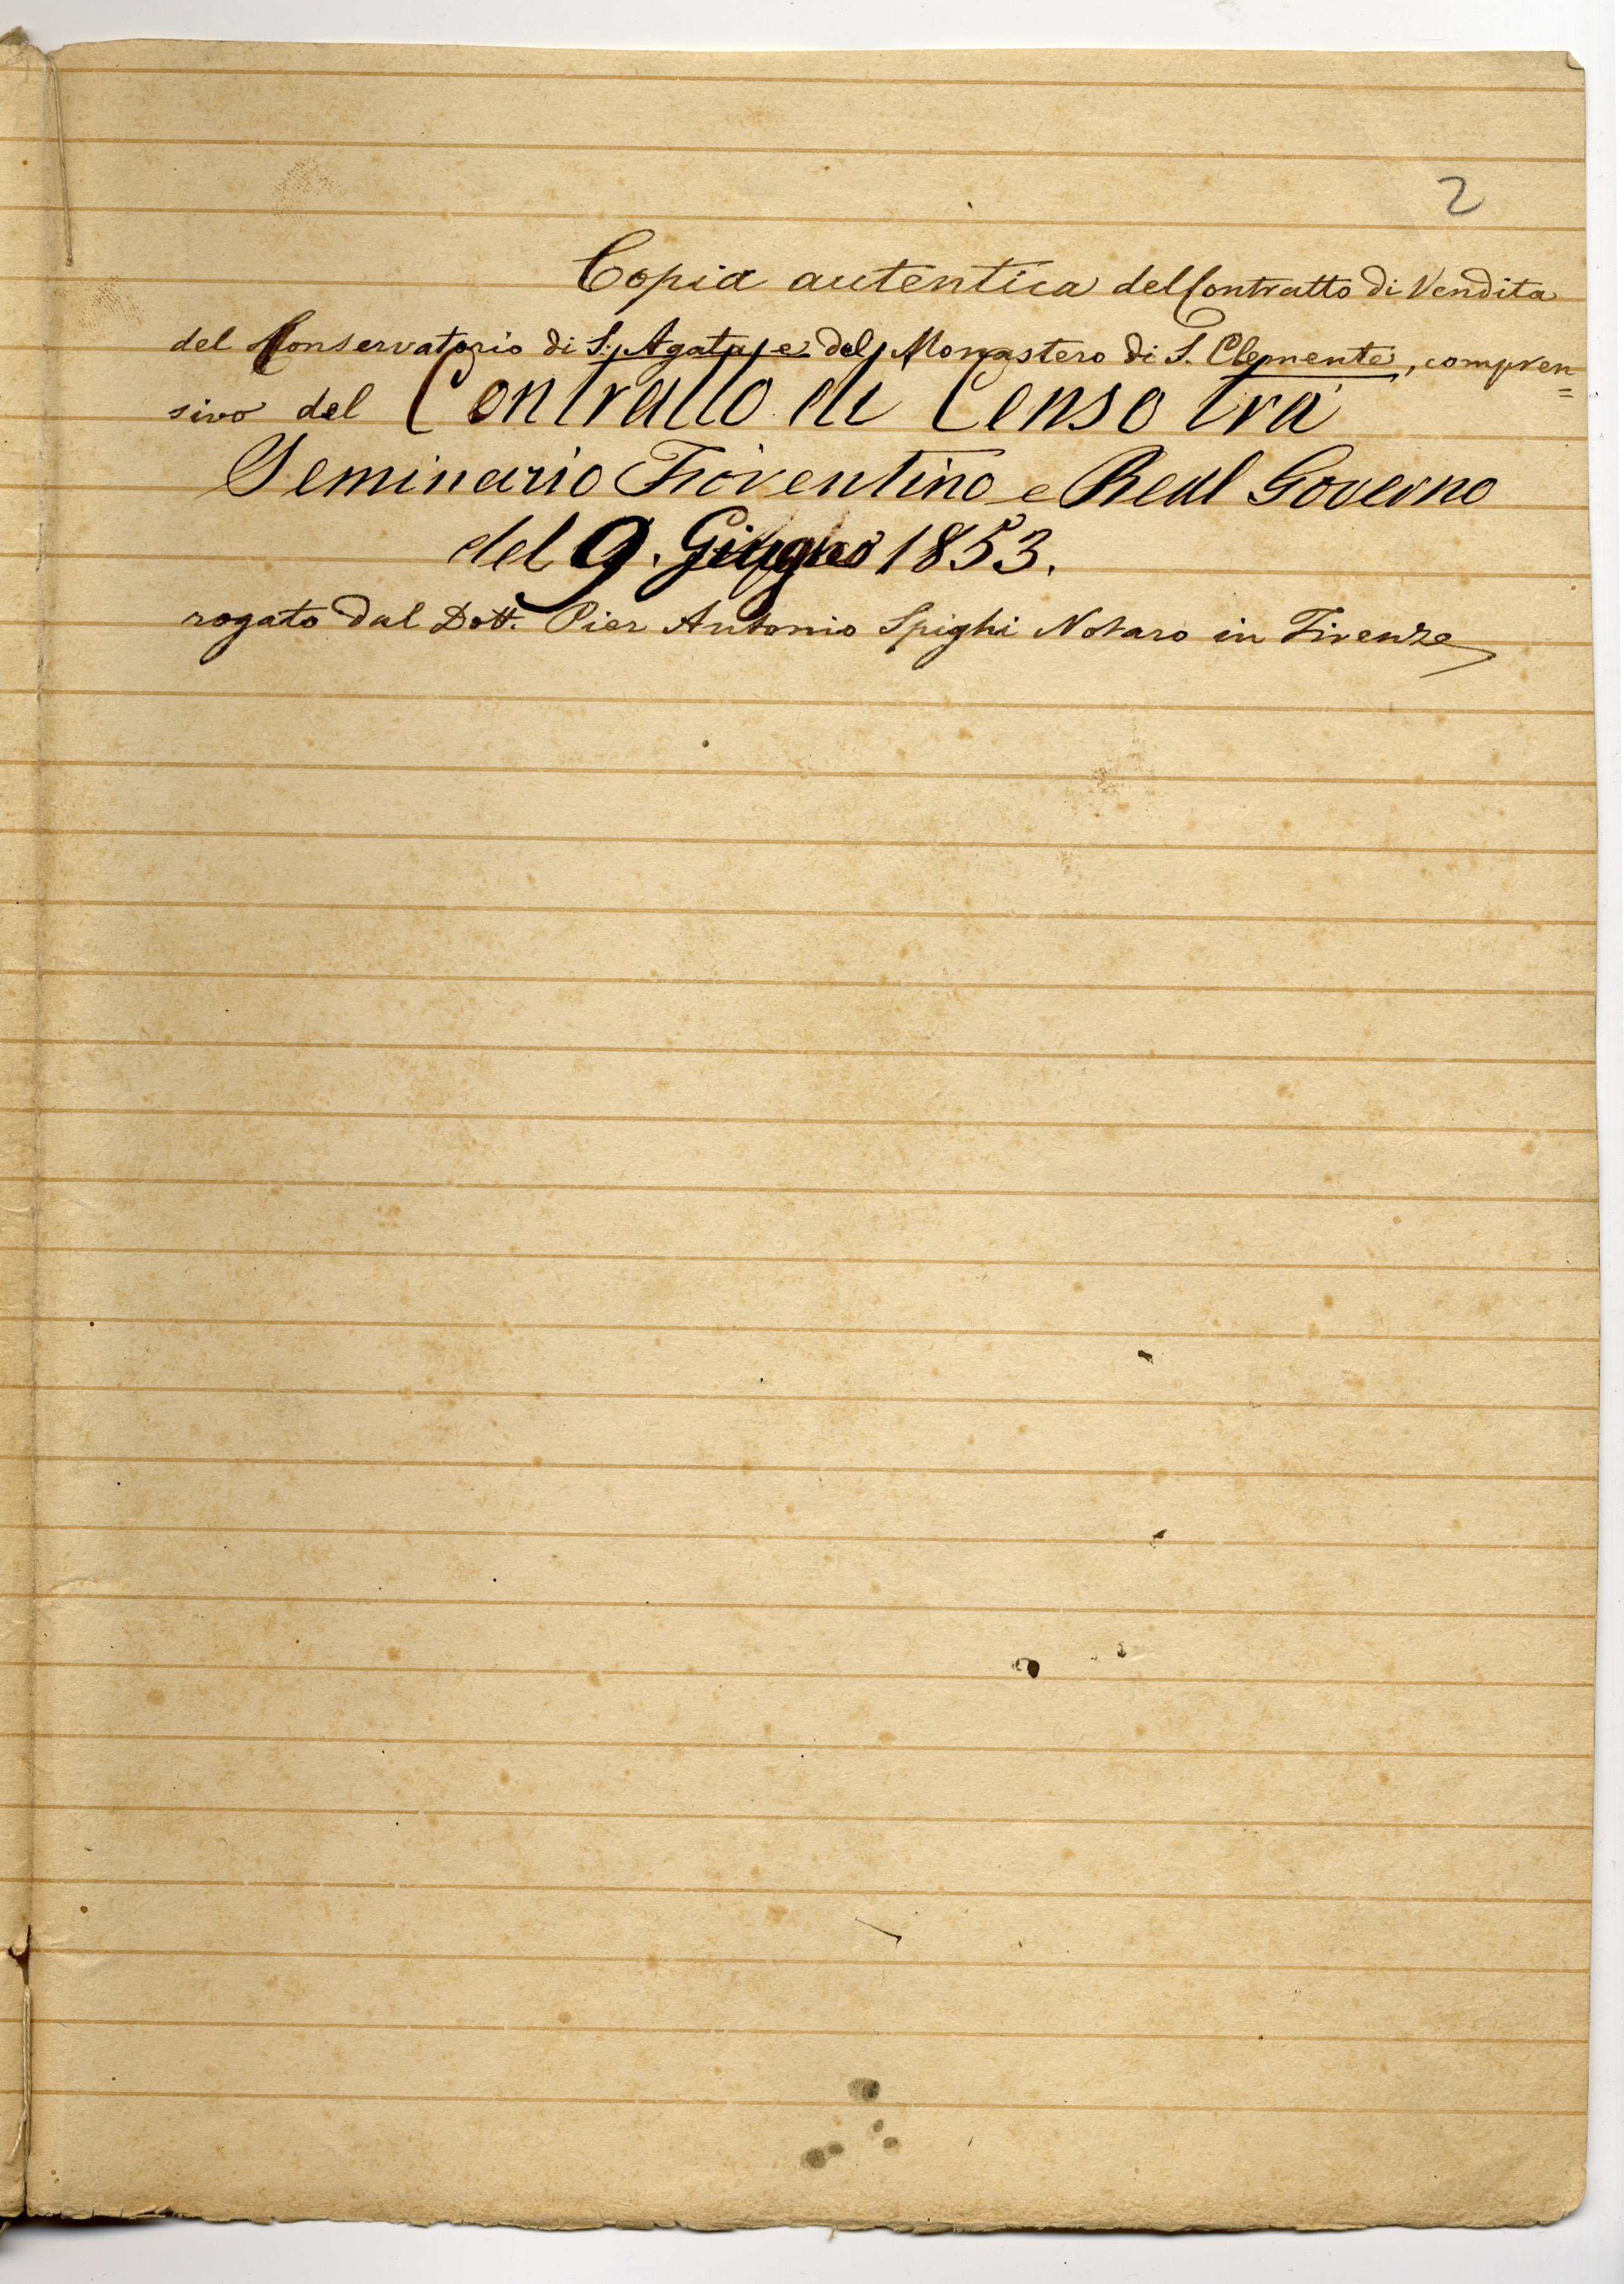 2
Copia autentica del Contratto di Vendita
del Conservatorio di S. Agata e del Monastero di S. Clemente, compren=
sivo del Contratto di Censo tra
Seminario Fiorentino e Real Governo
del 9. Giugno 1853.
rogato dal Dott. Pier Antonio Spighi Notaro in Firenze